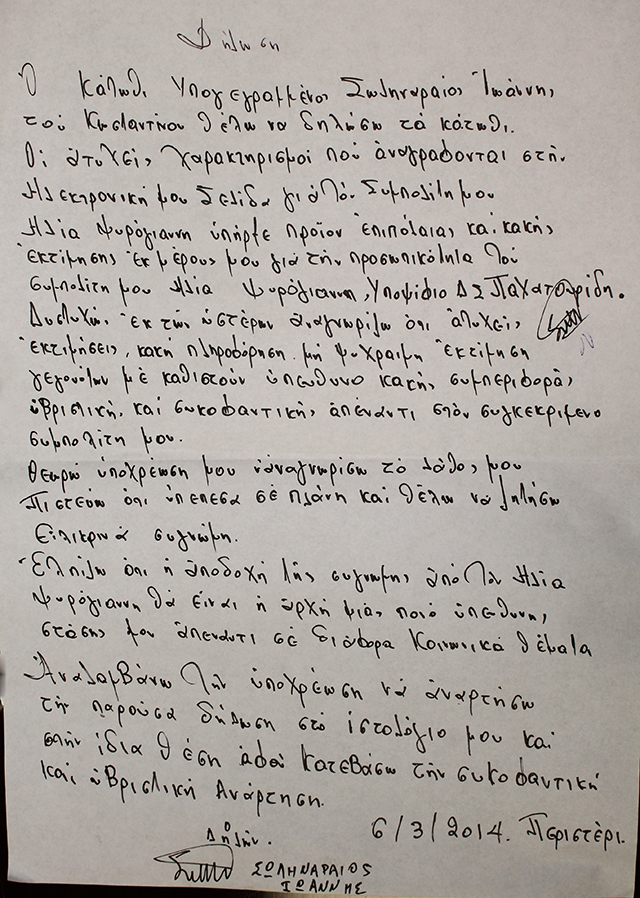 Δήλωση
Ο κάτωθι Υπογεγραμμένος Σωληναραιος Ιωάννης
του Κωσταντίνου θέλω να δηλώσω τα κάτωθι.
Οι ατυχείς χαρακτηρισμοί που αναγράφονται στην
Ηλεκτρονική μου Σελίδα για τον Συμπολίτη μου
Ηλία Ψυρόγιαννη υπήρξε προϊον επιπόλαιας και κακής
εκτίμησης εκ μέρους μου για την προσωπικότητα του
συμπολίτη μου Ηλία Ψυρόγιαννη, Υποψήφιο ΔΣ Παχατουρίδη.
Δυστυχώς εκ των υστέρων αναγνωρίζω ότι ατυχείς
εκτιμήσεις, κακή πληροφόρηση μη ψύχραιμη εκτίμηση
γεγονότων με καθιστούν υπευθυνο κακής συμπεριφοράς
υβριστικής και συκοφαντικής απέναντι στον συγκεκριμενο
συμπολίτη μου.
Θεωρώ υποχρέωση μου να αναγνωρίσω το λάθος μου
Πιστεύω ότι υπεπεσα σε πλάνη και θέλω να ζητήσω
Ειλικρινά συγνώμη.
Ελπίζω ότι η αποδοχή της συγνωμης από τον Ηλία
Ψυρόγιαννη θα είναι η αρχή μιας ποιό υπευθυνης
στάσης μου απεναντι σε διάφορα Κοινωνικά θέματα
Αναλαμβάνω την υποχρέωση να αναρτήσω
την παρούσα δήλωση στο ιστολόγιο μου και
στην ίδια θέση αφού κατεβάσω την συκοφαντική
και υβριστική Ανάρτηση.
6/3/2014. Περιστέρι.
Ο
Δηλών.
ΣΩΛΗΝΑΡΑΙΟΣ
ΙΩΑΝΝΗΣ